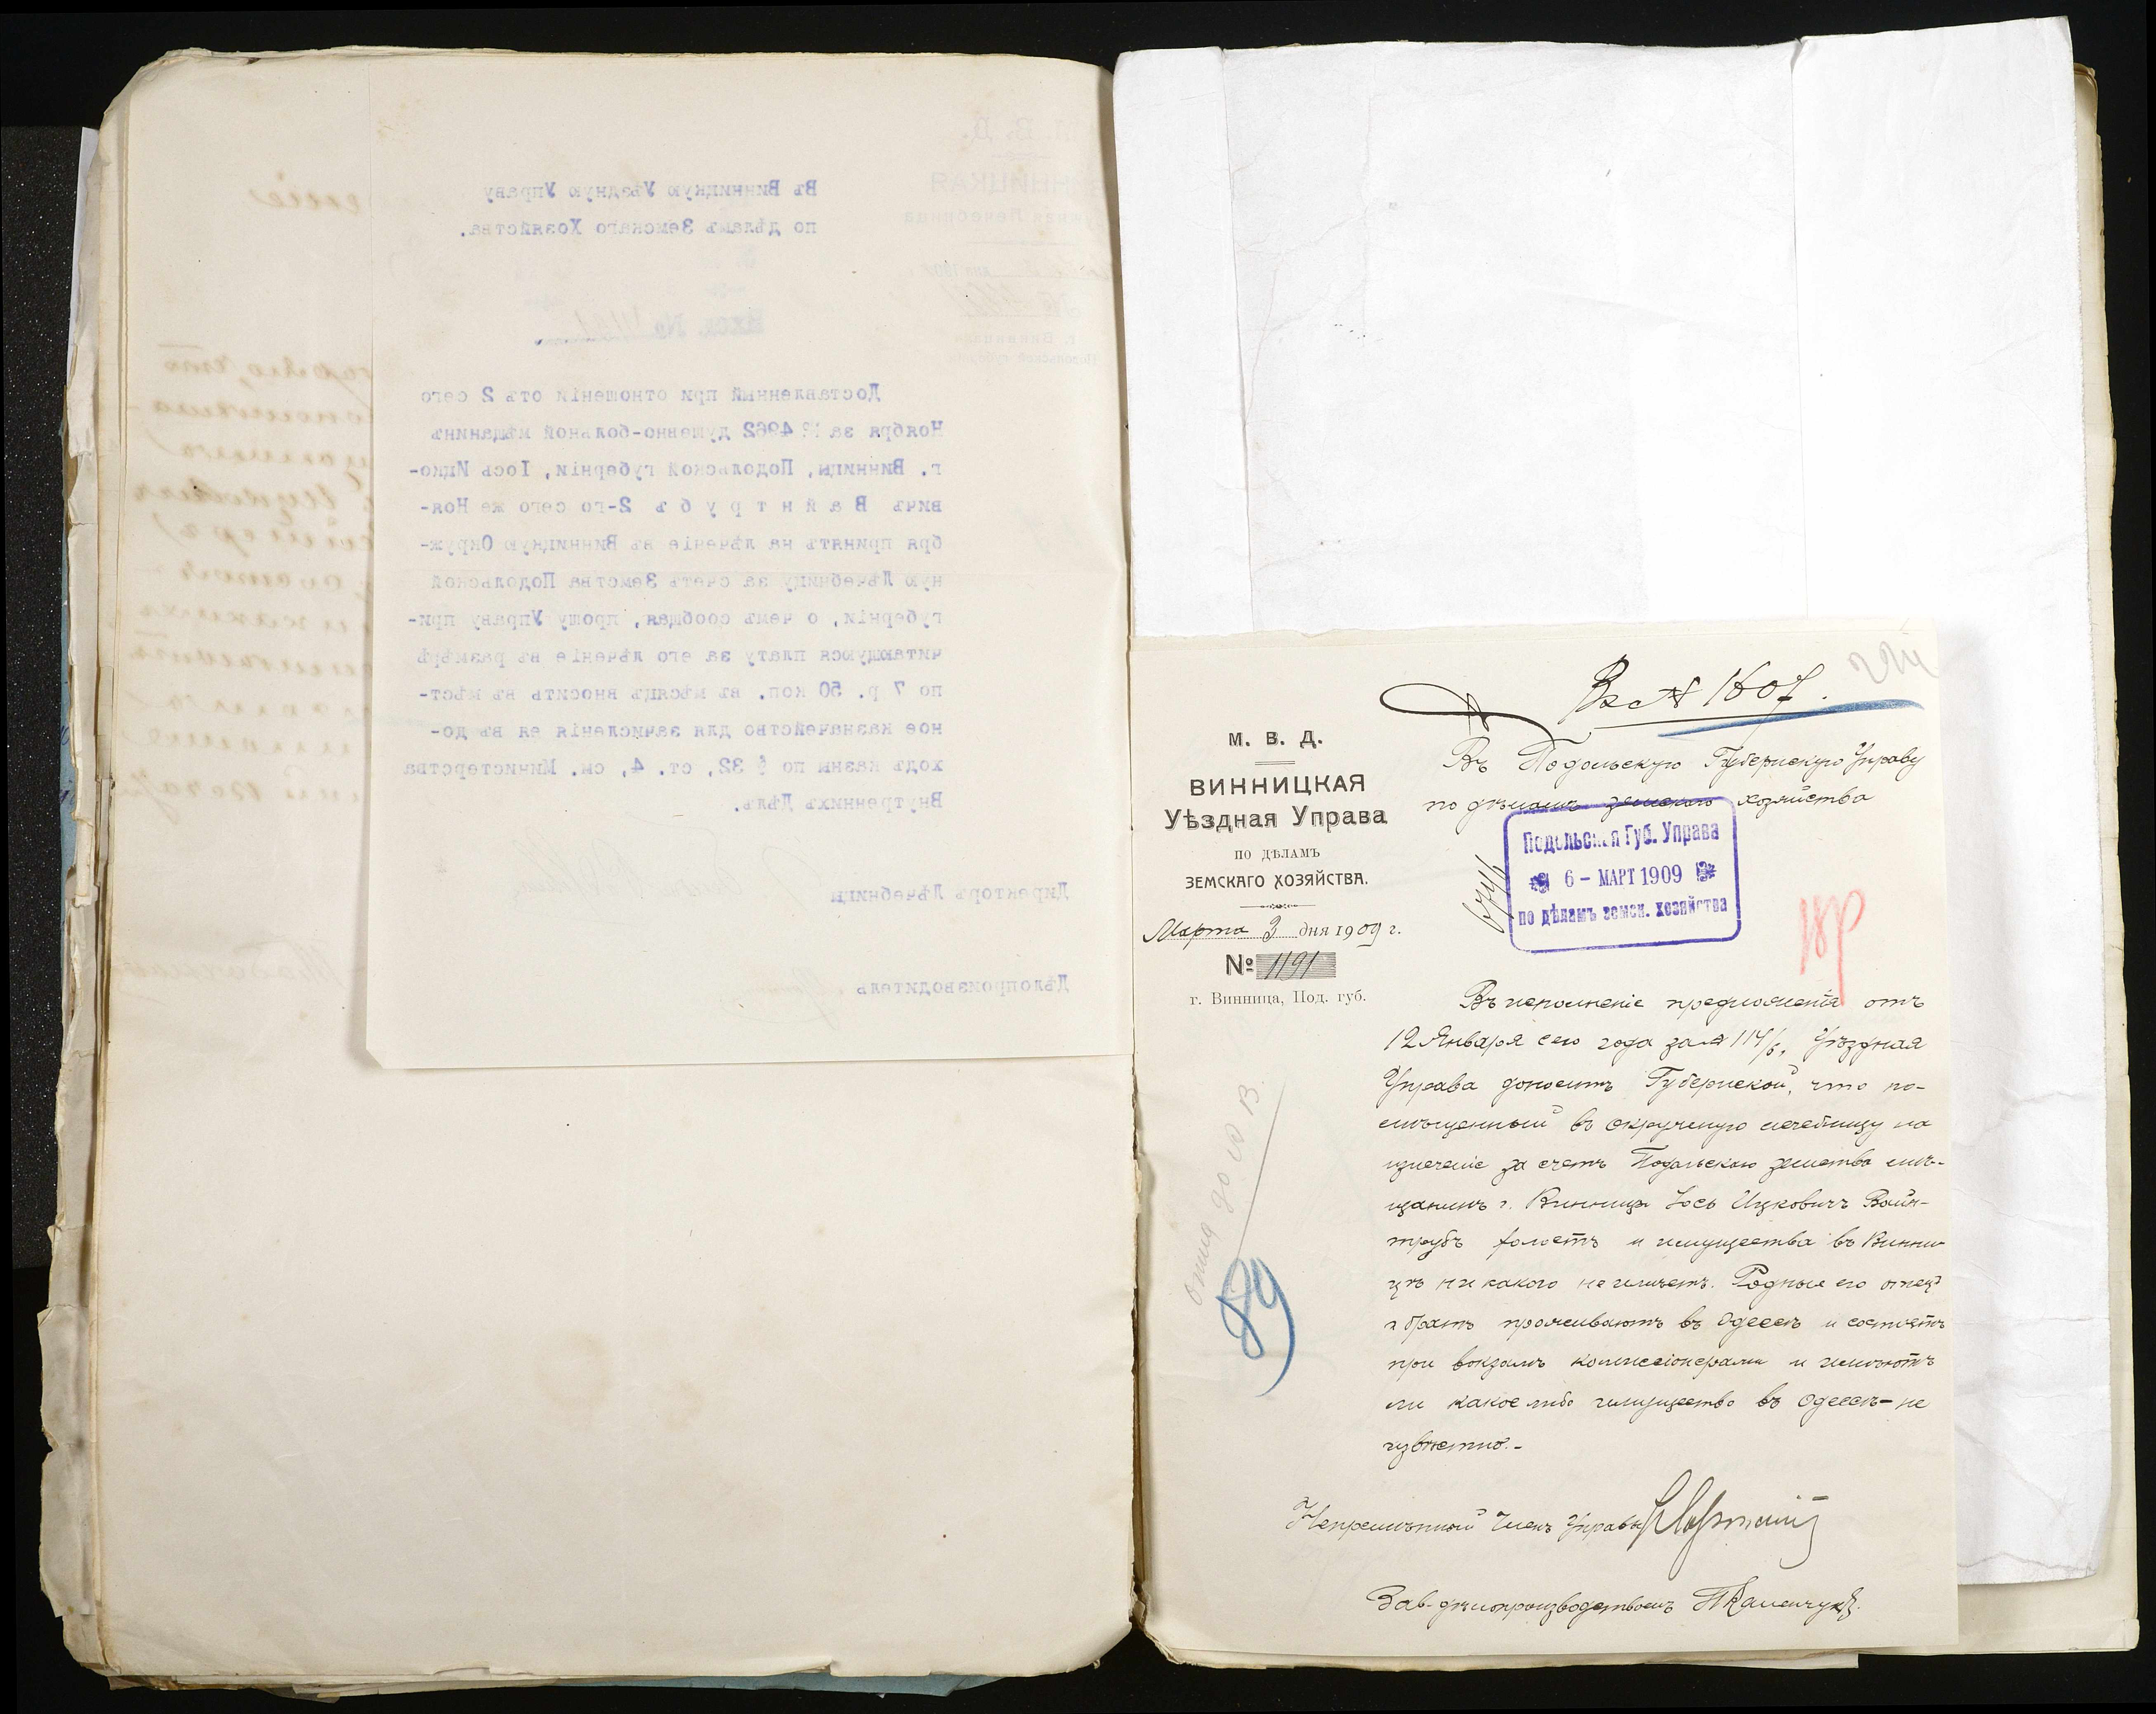 Въ Винницкую Уѣздную Управу
по дѣламъ Земскаго Хозяйства.
Вход. №
Доставленный при отношеніи отъ 2 сего
Ноября за № 4962 душевно-больной мѣщанинъ
г. Винницы, Подольской губерніи, Іось Ицко-
вичъ Вайнтрубъ 2-го сего же Ноя-
бря принятъ на лѣченіе въ Винницкую Окруж-
ную Лѣчебницу за счетъ Земства Подольской
губерніи, о чемъ сообщая, прошу Управу при-
читающуюся плату за его лѣченіе въ размѣрѣ
по 7 р. 50 коп. въ мѣсяцъ вносить въ мѣст-
ное казначейство для зачисленія ея въ до-
ходъ казны по § 32, ст. 4, см. Министерства
Внутреннихъ Дѣлъ.
Директоръ Лѣчебницы
Дѣлопроизводитель
М. В. Д.
ВИННИЦКАЯ
Уѣздная Управа
ПО ДѢЛАМЪ
ЗЕМСКАГО ХОЗЯЙСТВА.
Марта 3 дня 1909 г.
№ 1191
г. Винница, Под. губ.
Вх № 1607.
Въ Подольскую Губернскую Управу
по дѣламъ земскаго хозяйства
Подольская Губ. Управа
6 – МАРТ 1909
по дѣламъ земск. хозяйства
Въ исполненіе предложенія отъ
12 Января сего года за № 114/б, Уѣздная
Управа доноситъ Губернской, что по-
мѣщенный въ окружную лечебницу на
излеченіе за счетъ Подольскаго земства мѣ-
щанинъ г. Винницы Іось Ицковичъ Вайн-
трубъ холостъ и имущества въ Винни-
цѣ никакого не имѣетъ. Родные его отецъ
и братъ проживаютъ въ Одессѣ и состоятъ
при вокзалѣ коммиссіонерами и имѣютъ
ли какое либо имущество въ Одессѣ – не
извѣстно. –
Непремѣнный Членъ Управы
Зав. дѣлопроизводствомъ
89